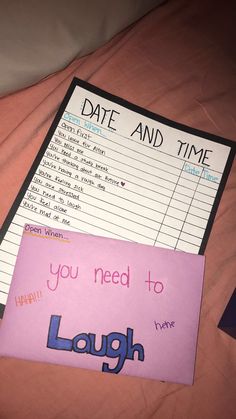 DATE AND TIME
Open When...
Date
Time
Open First
You leave for
You miss me
You need a study break
You're thinking about our future ♥
You're having a rough day
You're feeling sick
You are stressed
You need to laugh
You feel alone
You're mad at me
Open When...
you need to
HAHA!!
hehe
Laugh